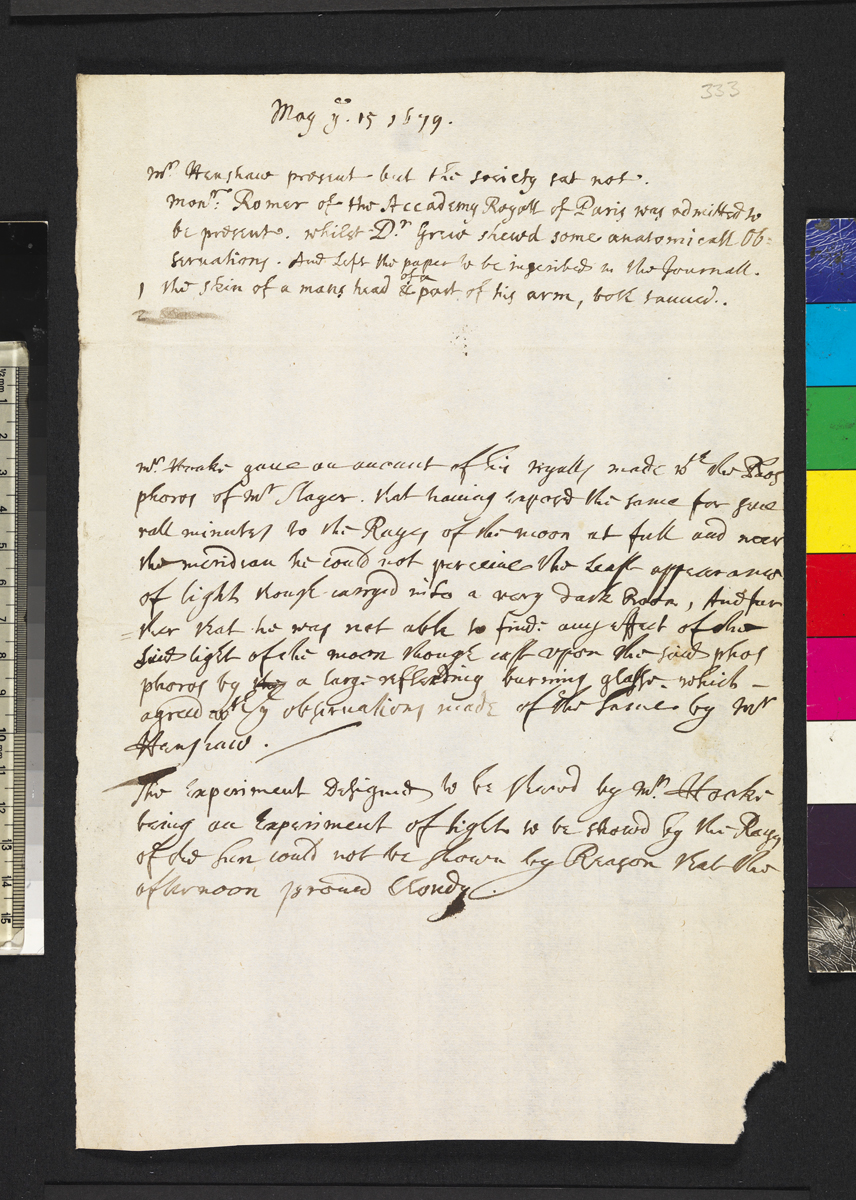 333
May ye. 15 1679.
Mr. Henshaw present but the society sat not.
monsr. Romer of the Accademy Royall of Paris was admitted to
be present. whilst Dr. Grew shewd some anatomicall Ob:
servations. And left the paper to be inscribed in the Journall.
1 the skin of a mans head & of a part of his arm, both tanned.
2
mr. Hooke gave an account of his tryalls made wth the Phos
phoros of Mr Slayer. that having exposd the same for seve
rall minutes to the Rayes of the moon at full and neer
the meridian he could not perceive the least appearance
of light though carryed into a very dark Room, And fur
= ther that he was not able to finde any effect of the
said light of the moon though cast upon the said phos
phoros by a large reflecting burning glasse. which
agreed wth ye observations made of the same by Mr
Henshaw.
The Experiment Designed to be shewd by mr. Hooke
being an Experiment of light to be showd by the Rayes
of the Sun could not be shown by Reason that the
afternoon proved Cloudy.